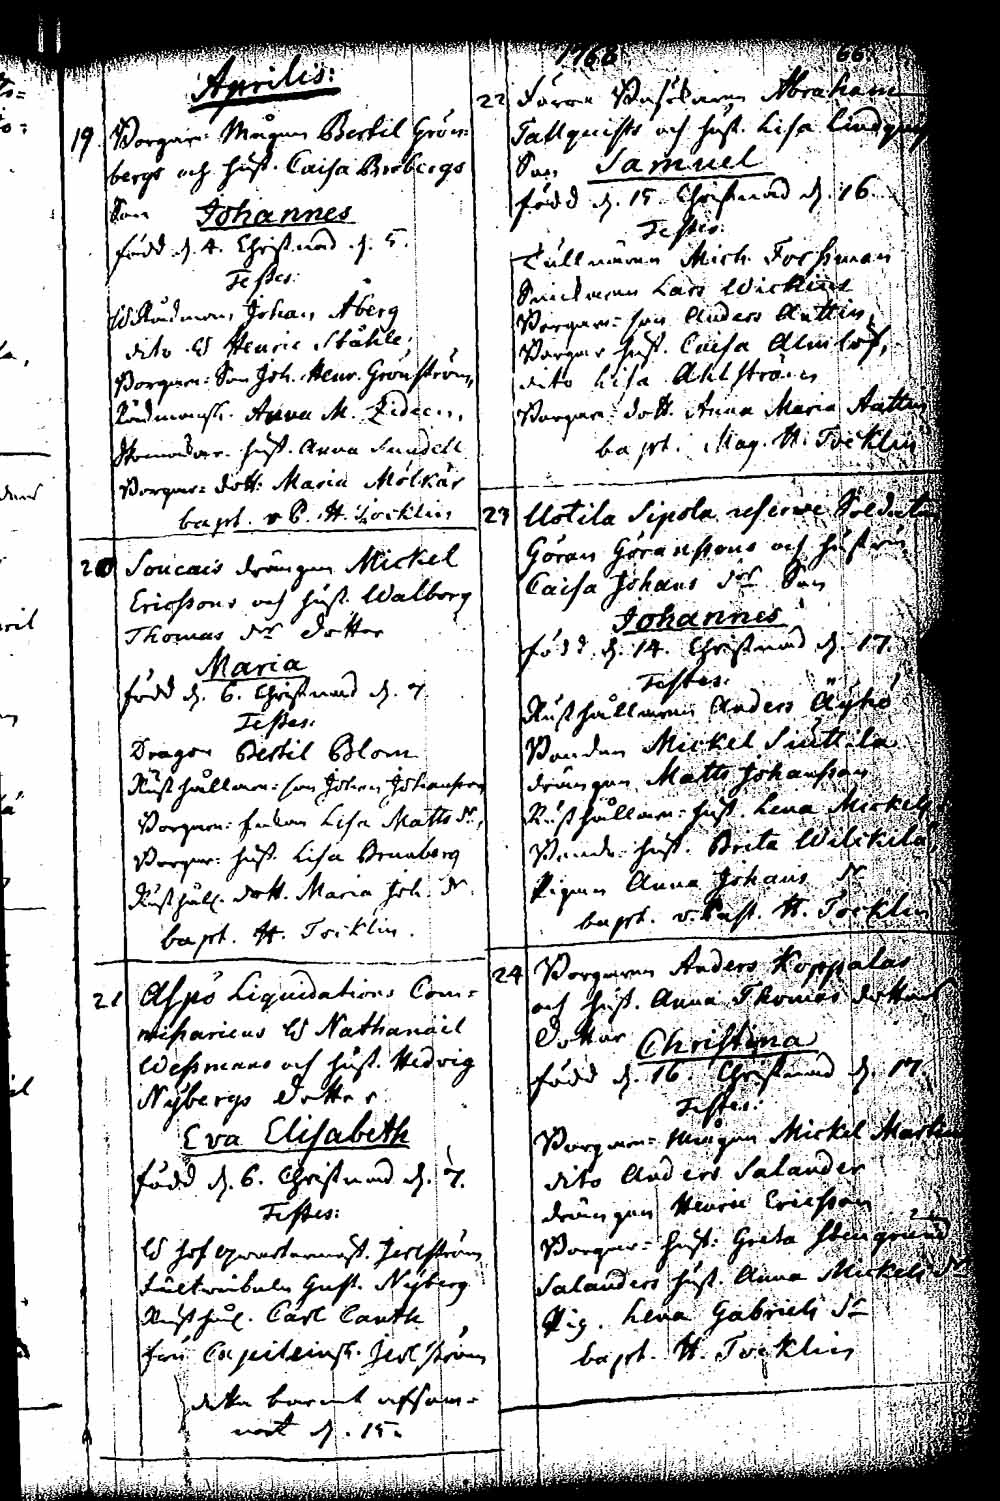 1768.
66.
Aprilis:
19. Borgar= Mågen Bertil Grön=
bergs och hust. Caisa Brobergs
Son Johannes
född d. 4. Christnad d. 5.
Testes:
Rådman Johan Åberg
dito Henric Ståhle,
Borgar: Son Joh. Henr. Grönström,
Rådmansk. Anna M.
hust. Anna Sundell
Borgar= dott: Maria Molkär
bapt. v. P. H. Tocklin
20 Soucais drängen Mickel
Ericssons och hust. Walborg
Thomas dr dotter
Maria
född d. 6. Christnad d. 7
Testes:
Dragon Bertil Blom
Rusthållar= son Johan Johansson
Borgar: Lisa Matts dr,
Borgar: hust. Lisa Brunberg
Rusthål. dott. Maria Joh. dr.
bapt. H. Tocklin.
21 Aspö Liquidations Com=
missariens Nathanael
Wessmans och hust. Hedwig
Nybergs dotter
Eva Elisabeth
född d. 6. Christnad d. 7.
Testes:
Jerlström
Gust. Nyberg
Rusthål. Carl Canth
fru Capiteinsk. Jerlström
detta barnet afsom=
nat d. 15.
22 Färgare Abraham
Tallquists och hust. Lisa Lindqvists
Son Samuel
född d. 15. Christnad d. 16.
Testes:
Tullnären Mich. Forsman
Lars Wicklius
Borgare= son Anders Anttin,
Borgar hust. Caisa Almlöf,
dito Lisa Ahlström
Borgar= dott. Anna Maria Anttin
bapt. Mag. H. Tocklin
23 Uotila Sipola reserve Soldaten
Göran Göranssons och hustru
Caisa Johans dr Son
Johannes
född d. 14. Christnad d. 17.
Testes:
Rusthållaren Anders Äyhö
Bonden Mickel Siuttila
drängen Matts Johansson
Rusthållar= hust. Lena Mickels
Bonde hust. Brita Wilikila,
Pigan Anna Johans dr
bapt. v. Past. H. Tocklin
24 Borgaren Anders Koppalas
och hust. Anna Thomas dotters
Dotter Christina
född d. 16. Christnad d. 17.
Testes:
Borgar= Mågen Mickel Martin
dito Anders Salander
drängen Henric Ericsson
Borgar= hust: Greta Stengrund
Salanders hust. Anna Mickels dr
Pig. Lena Gabriels dr
bapt. H. Tocklin